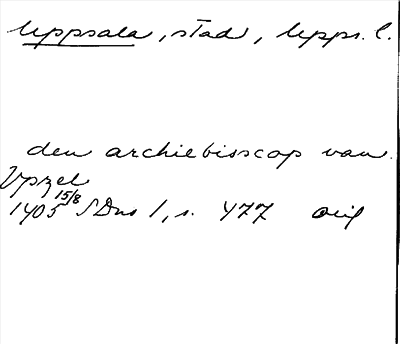 Uppsala, stad, Upps. l.
den archiebisscop van
Upzel
1405 15/8 SDns 1, s. 477 orig